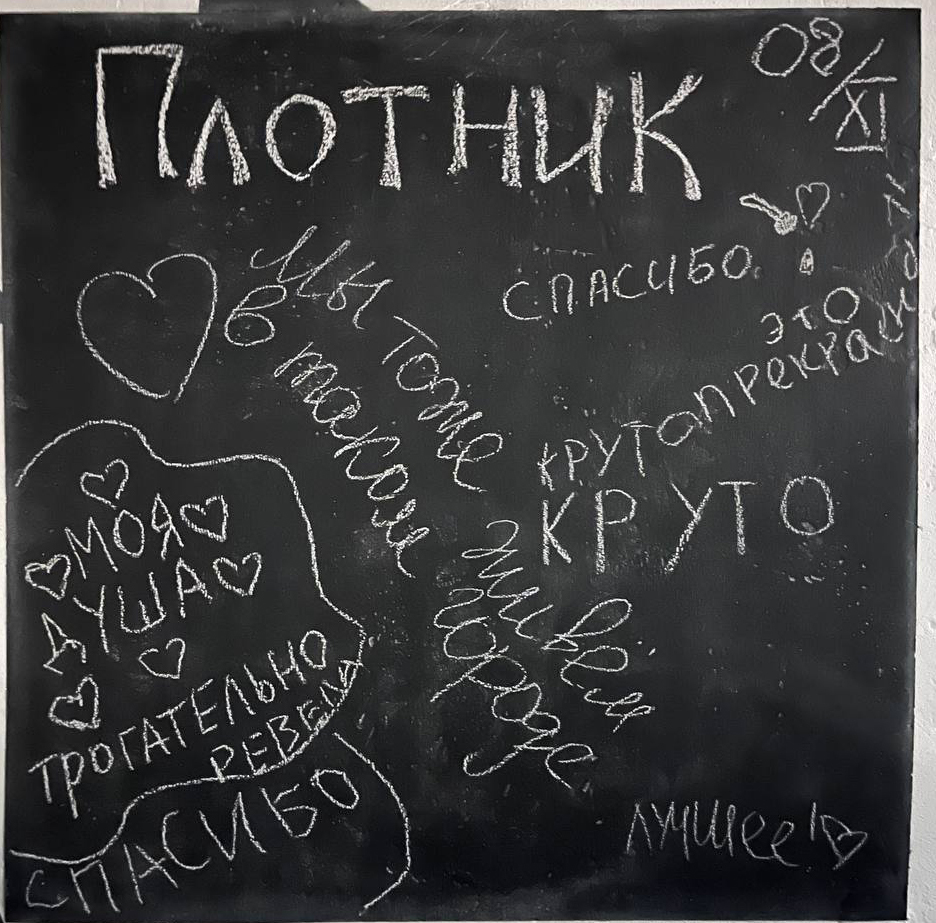 ПЛОТНИК
08/XI
СПАСИБО
ЭТО
КРУТО
ПРЕКРАСНО
КРУТО
Мы тоже живём
в таком городе
МОЯ
ДУША
ТРОГАТЕЛЬНО
РЕВЕЛА
СПАСИБО
ЛУЧШЕЕ!